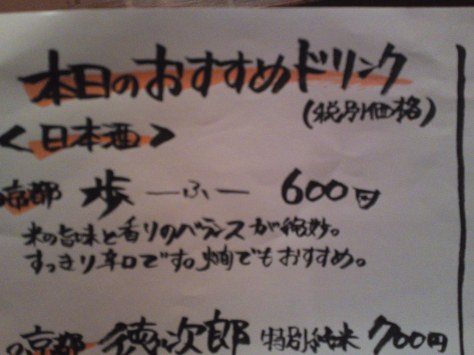 本日のおすすめドリンク
(税別価格)
<日本酒>
京都 歩 ―ふ― 600円
米の旨味と香りのバランスが絶妙。
すっきり辛口です。燗でもおすすめ。
の京都 徳次郎 特別純米 700円